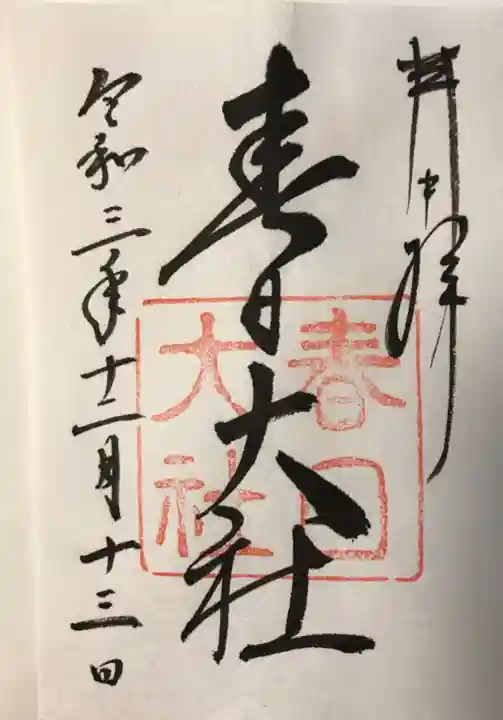 拝
春日大社
令和三年十二月十三日
春日
大社